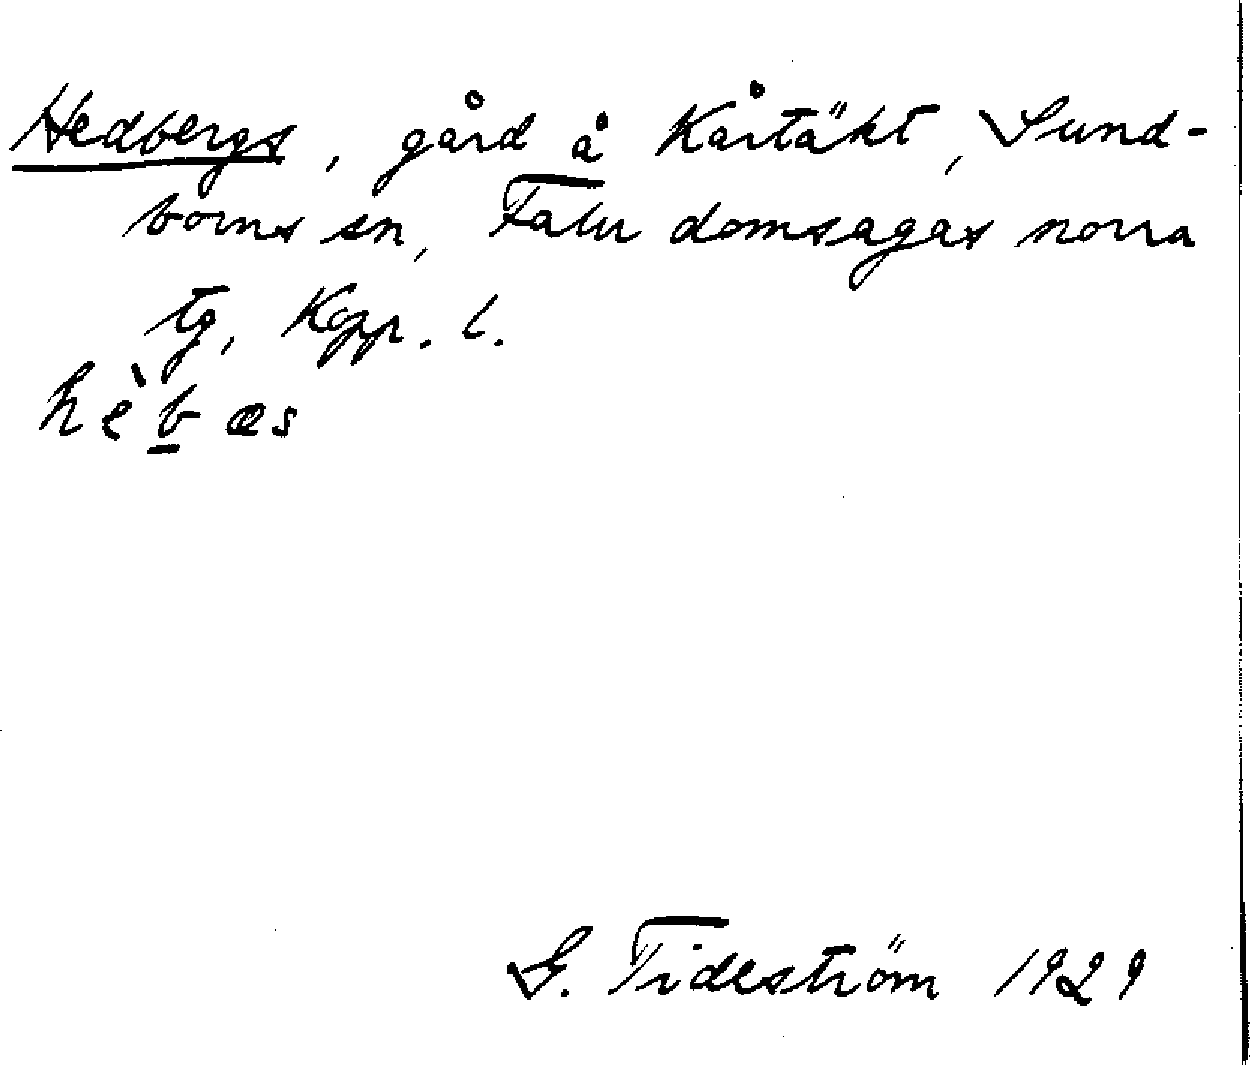 Hedbergs, gård å Kårtäkt, Sund-
borns sn, Falu domsagas norra
tg, Kopp. l.
hèbæs
G. Tideström 1929